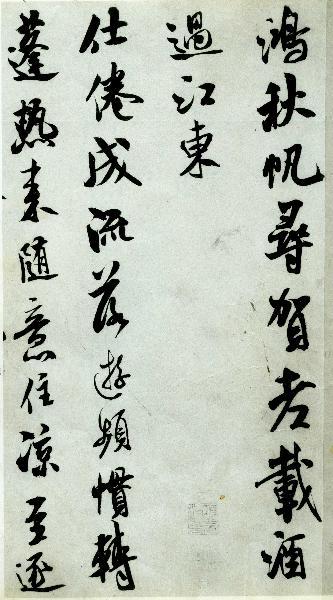 鴻秋帆尋賀老載酒
過江東
仕倦成流落遊頻慣轉
蓬熱来隨意住涼至逐